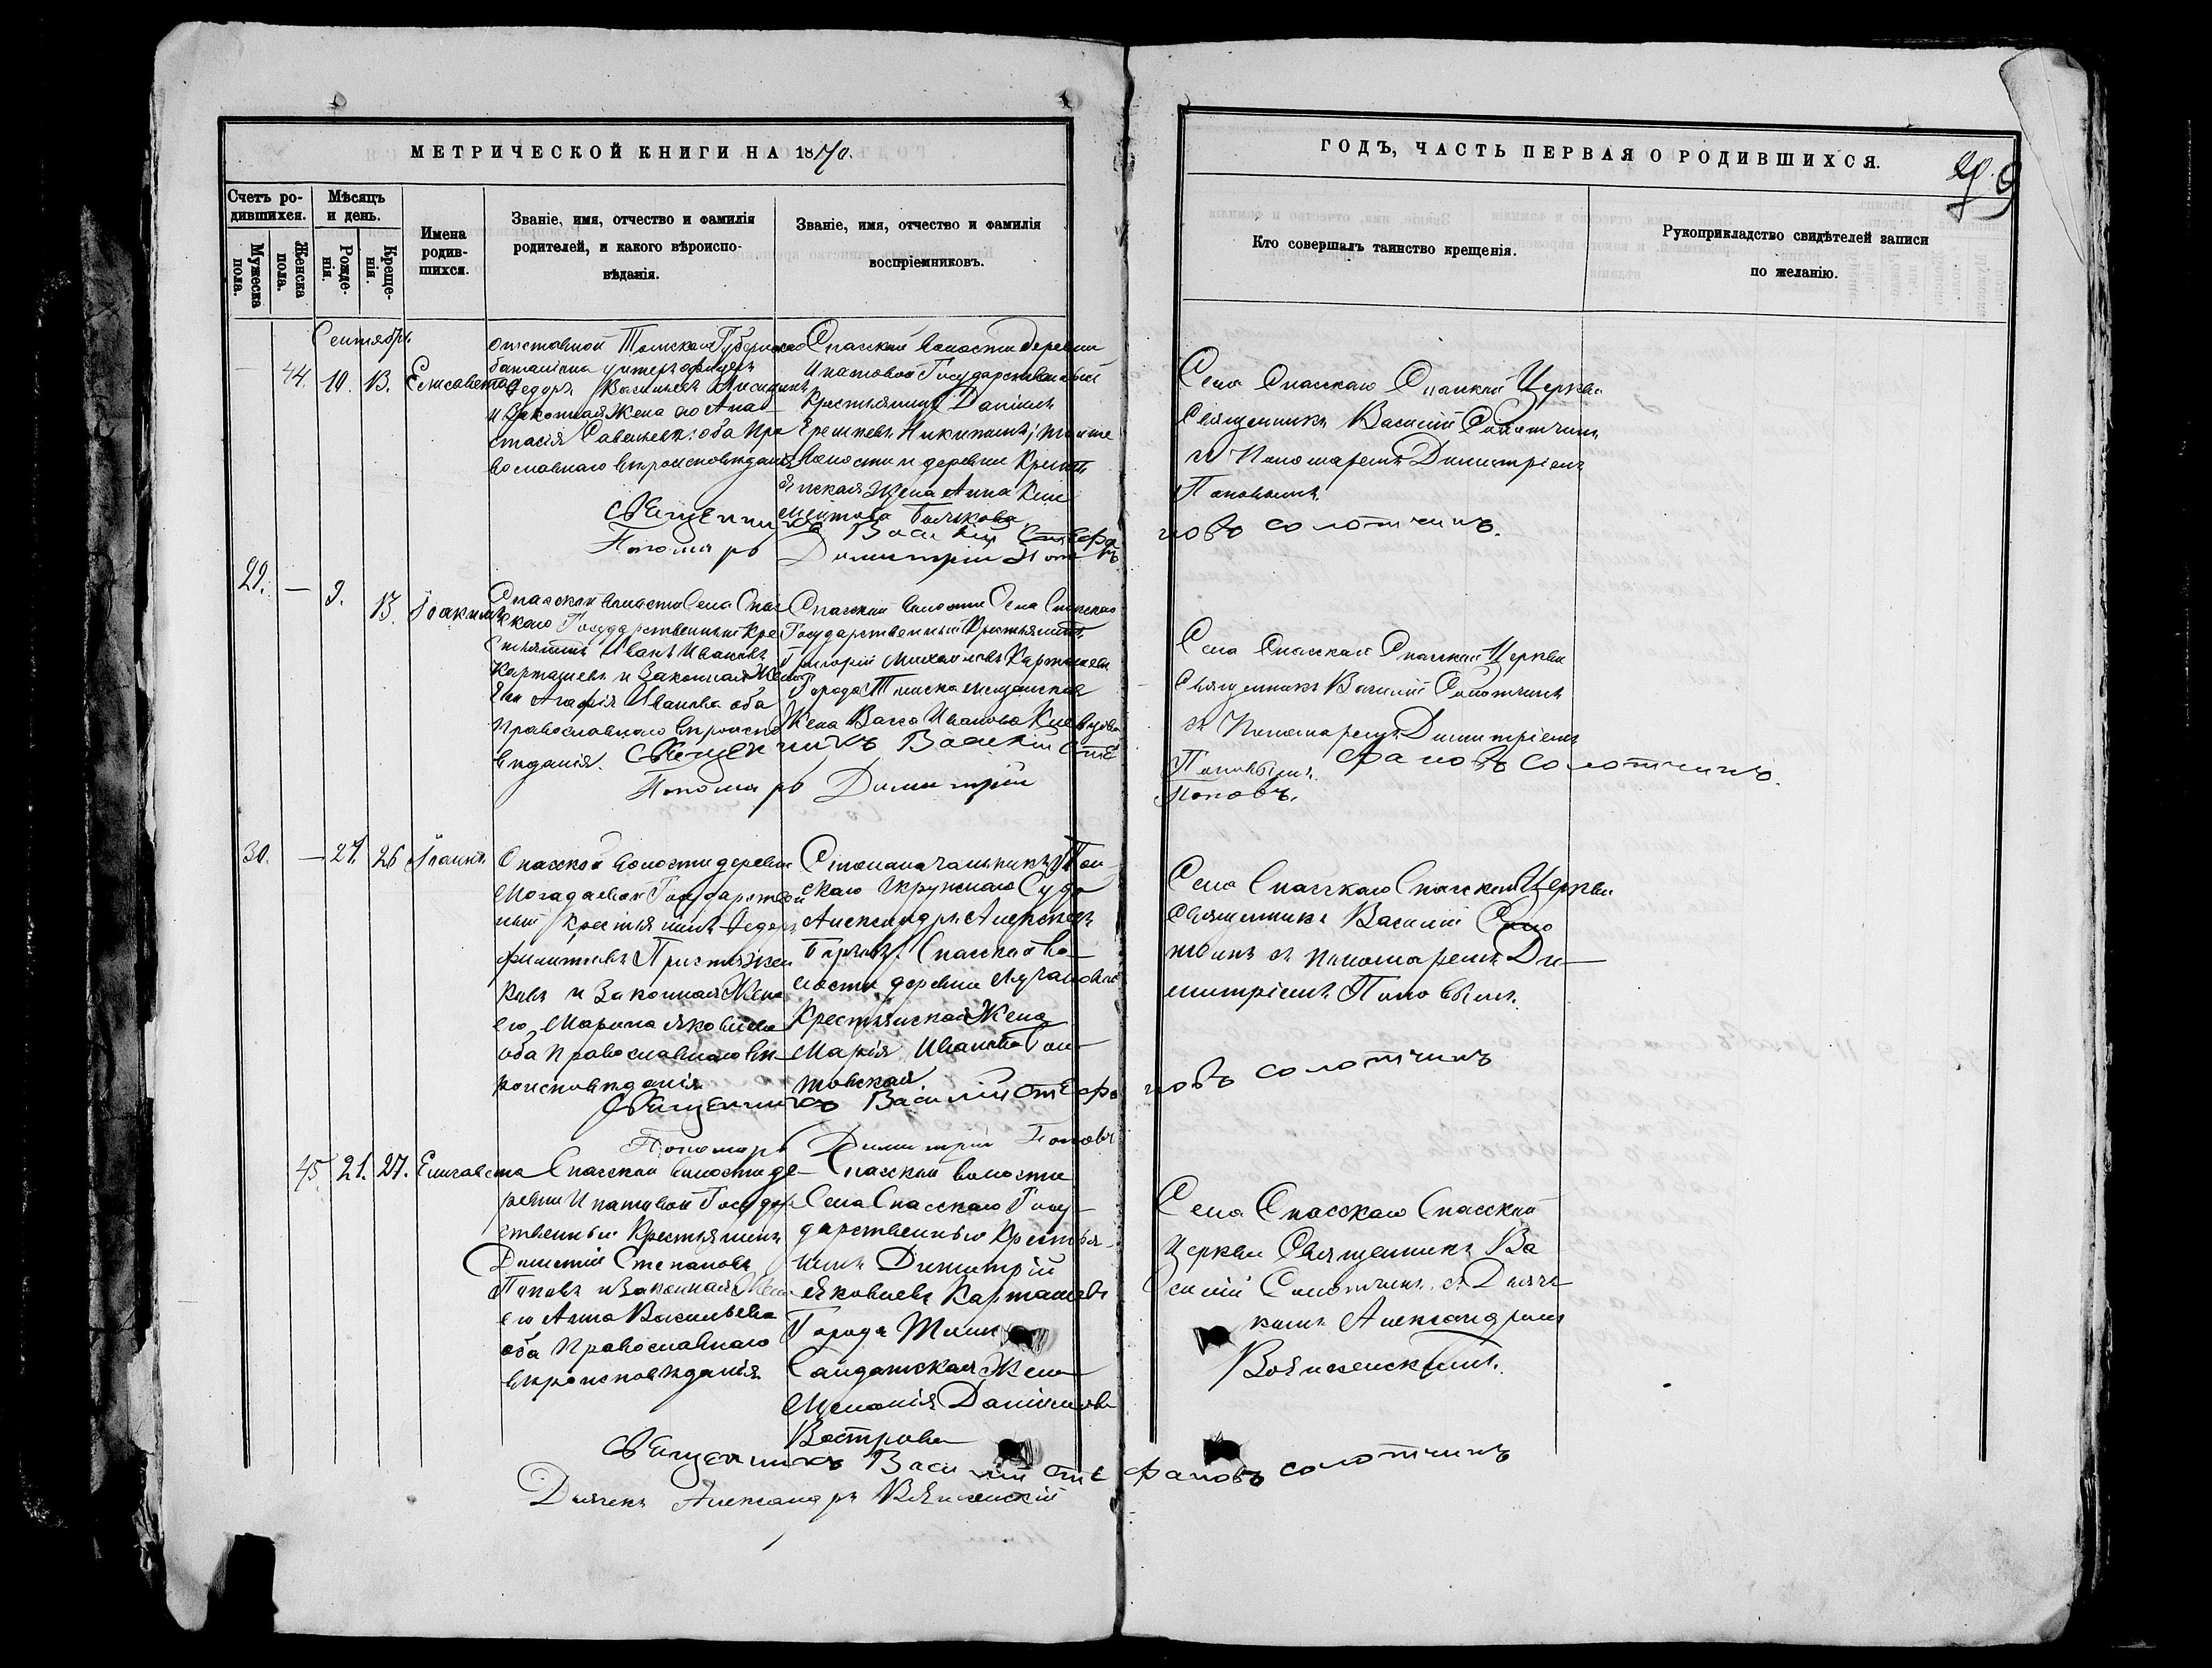 МЕТРИЧЕСКОЙ КНИГИ НА 1870.
Счетъ ро-
дившихся.
Мужеска
пола.
Женска
пола.
Мѣсяцъ
и день.
Рожде-
нія.
Креще-
нія.
Имена
родив-
шихся.
Званіе, имя, отчество и фамилія
родителей, и какого вѣроиспо-
вѣданія.
Званіе, имя, отчество и фамилія
воспріемниковъ.
ГОДЪ, ЧАСТЬ ПЕРВАЯ О РОДИВШИХСЯ.
Кто совершалъ таинство крещенія.
Рукоприкладство свидѣтелей записи
по желанію.
Сентябрь
— 44. 10. 13. Елисавета
отставной Томскаго Губернскаго
баталіона унтеръ офицеръ
Федоръ Васильевъ
и Законная Жена его Ана-
стасія Савельева: оба Пра
вославнаго вѣроисповѣданія
Спасской волости деревни
Ипатовой Государственный
Крестьянинъ Даніилъ
Никитинъ; тойже
Волости и деревни Кресть
янская Жена Анна Кли
ментова
Села Спасскаго Спасской Церкви
Священникъ Василій Солотчинъ
съ Пономаремъ Димитріемъ
Поповымъ.
Священникъ Василій Стефановъ Солотчинъ.
Пономарь Димитрій Поповъ
29. — 9. 13. Іоакимъ
Спасской волости Села Спас
скаго Государственный Кре
стьянинъ Иванъ Ивановъ
Карташевъ и Законная Жена
Его Агафія Иванова оба
Православнаго вѣроиспо
вѣданія.
Спасской волости Села Спасскаго
Государственный Крестьянинъ
Григорій Михайловъ Карташевъ
Города Томска мещанская
Жена Васса Иванова
Села Спасскаго Спасской Церкви
Священникъ Василій Солотчинъ
съ Пономаремъ Димитріемъ
Поповымъ.
Священникъ Василій Стефановъ Солотчинъ.
Пономарь Димитрій
Поповъ.
30. — 21. 26 Іоаннъ.
Спасской волости деревни
Магадаевой Государствен
ный Крестьянинъ Федоръ
Филиповъ
и Законная Жена
его Марина Яковлева
оба Православнаго вѣ-
роисповѣданія
Столоначальникъ Том-
скаго Окружнаго Суда
Александръ Алексѣевъ
Спасской во-
лости деревни Лучановой
Крестьянская Жена
Марія Иванова
Села Спасскаго Спасской Церкви
Священникъ Василій Соло
тчинъ съ пономаремъ Ди-
митріемъ Поповымъ.
Священникъ Василій Стефановъ Солотчинъ
Пономарь Димитрій Поповъ
45. 21. 27. Елисавета
Спасской волости де-
ревни Ипатовой Государ
ственный Крестьянинъ
Степановъ
Поповъ и Законная Жена
его Анна Васильева
оба Православнаго
вѣроисповѣданія
Спасской волости
Села Спасскаго Госу-
дарственный Крестья-
нинъ Димитрій
Яковлевъ Карташевъ
Города Томска
Солдатская Жена
Меланія Даніилова
Вострова
Села Спасскаго Спасской
Церкви Священникъ Ва
силій Солотчинъ съ Дьяч-
комъ Александромъ
Вознесенскимъ.
Священникъ Василій Стефановъ Солотчинъ
Дьячекъ Александръ Вознесенскій